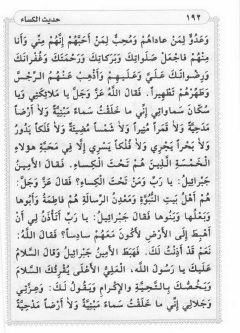 ١٩٢ حديث الكساء
وَعَدُوٌّ لِمَنْ عَادَاهُمْ وَمُحِبٌّ لِمَنْ أَحَبَّهُمْ إِنَّهُمْ مِنِّي وَأَنَا
مِنْهُمْ فَاجْعَلْ صَلَوَاتِكَ وَبَرَكَاتِكَ وَرَحْمَتَكَ وَغُفْرَانَكَ
وَرِضْوَانَكَ عَلَيَّ وَعَلَيْهِمْ وَأَذْهِبْ عَنْهُمُ الرِّجْسَ
وَطَهِّرْهُمْ تَطْهِيراً. فَقَالَ اللهُ عَزَّ وَجَلَّ يَا مَلَائِكَتِي وَيَا
سُكَّانَ سَمَاوَاتِي إِنِّي مَا خَلَقْتُ سَمَاءً مَبْنِيَّةً وَلَا أَرْضاً
مَدْحِيَّةً وَلَا قَمَراً مُنِيراً وَلَا شَمْساً مُضِيئَةً وَلَا فَلَكاً يَدُورُ
وَلَا بَحْراً يَجْرِي وَلَا فُلْكاً يَسْرِي إِلَّا فِي مَحَبَّةِ هؤلَاءِ
الْخَمْسَةِ الَّذِينَ هُمْ تَحْتَ الْكِسَاءِ. فَقَالَ الأَمِينُ
جَبْرَائِيلُ: يَا رَبِّ وَمَنْ تَحْتَ الْكِسَاءِ؟ فَقَالَ عَزَّ وَجَلَّ:
هُمْ أَهْلُ بَيْتِ النُّبُوَّةِ وَمَعْدِنُ الرِّسَالَةِ هُمْ فَاطِمَةُ وَأَبُوهَا
وَبَعْلُهَا وَبَنُوهَا فَقَالَ جَبْرَائِيلُ: يَا رَبِّ أَتَأْذَنُ لِي أَنْ
أَهْبِطَ إِلَى الأَرْضِ لأَكُونَ مَعَهُمْ سَادِساً؟ فَقَالَ اللهُ:
نَعَمْ قَدْ أَذِنْتُ لَكَ. فَهَبَطَ الأَمِينُ جَبْرَائِيلُ وَقَالَ السَّلَامُ
عَلَيْكَ يَا رَسُولَ اللهِ، الْعَلِيُّ الأَعْلَى يُقْرِئُكَ السَّلَامَ
وَيَخُصُّكَ بِالتَّحِيَّةِ وَالإِكْرَامِ وَيَقُولُ لَكَ: وَعِزَّتِي
وَجَلَالِي إِنِّي مَا خَلَقْتُ سَمَاءً مَبْنِيَّةً وَلَا أَرْضاً مَدْحِيَّةً